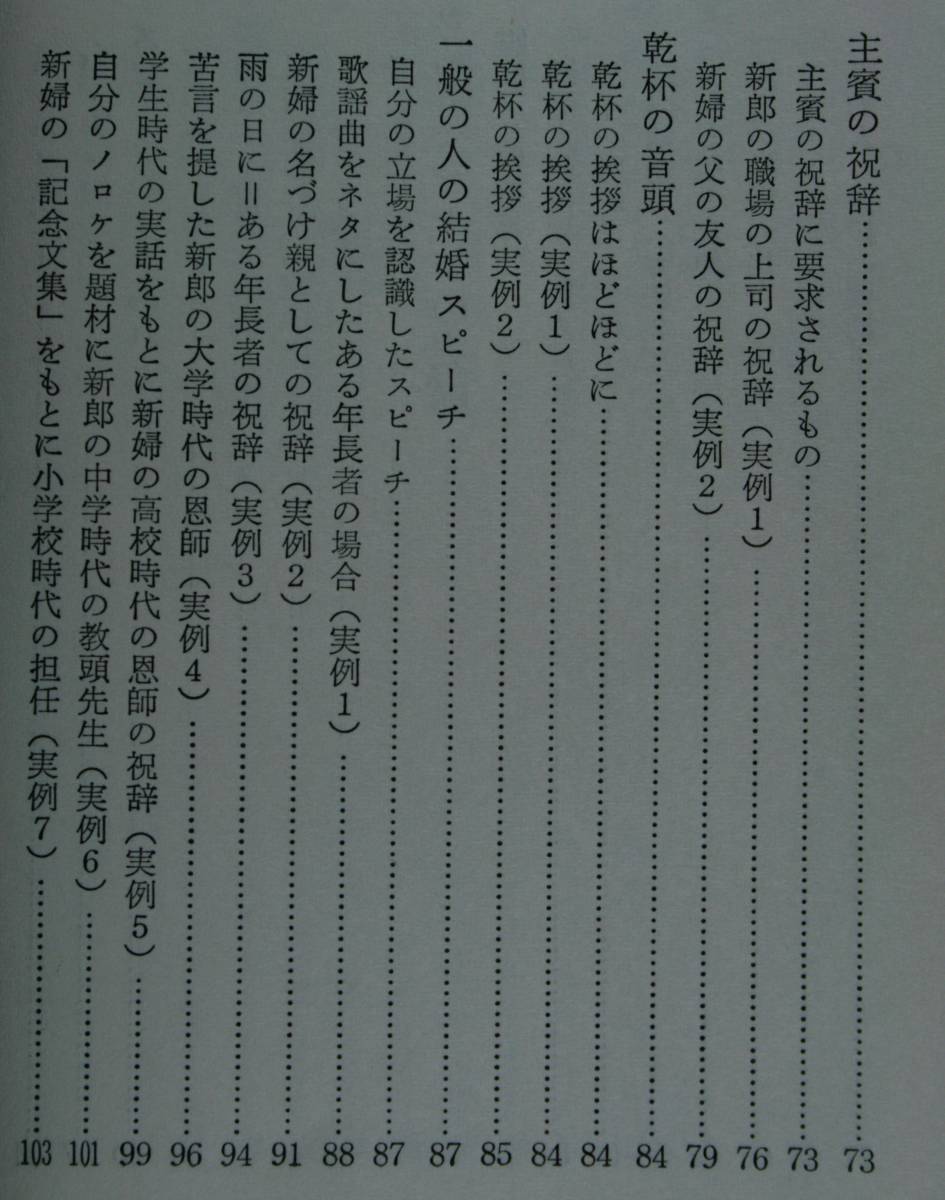 主賓の祝辞……………………73
主賓の祝辞に要求されるもの……………………73
新郎の職場の上司の祝辞（実例1）……………………76
新婦の父の友人の祝辞（実例2）……………………79
乾杯の音頭……………………84
乾杯の挨拶はほどほどに……………………84
乾杯の挨拶（実例1）……………………84
乾杯の挨拶（実例2）……………………85
一般の人の結婚スピーチ……………………87
自分の立場を認識したスピーチ……………………87
歌謡曲をネタにしたある年長者の場合（実例1）……………………88
新婦の名づけ親としての祝辞（実例2）……………………91
雨の日に＝ある年長者の祝辞（実例3）……………………94
苦言を提した新郎の大学時代の恩師（実例4）……………………96
学生時代の実話をもとに新婦の高校時代の恩師の祝辞（実例5）……………………99
自分のノロケを題材に新郎の中学時代の教頭先生（実例6）……………………101
新婦の「記念文集」をもとに小学校時代の担任（実例7）……………………103